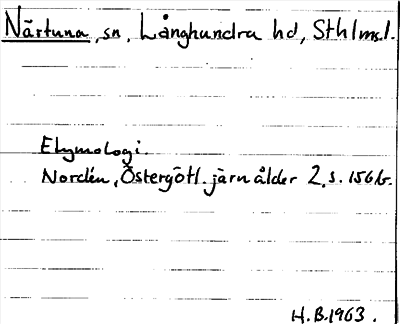 Närtuna, sn, Långhundra hd, Sthlms.l.
Etymologi.
Nordén, Östergötl. järnålder 2, s. 156 fr.
H.B. 1963.